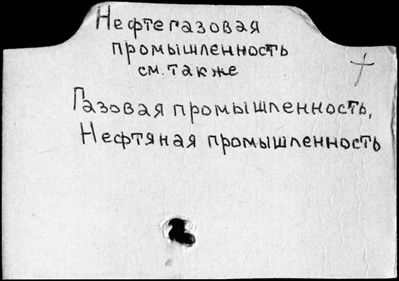 Нефтегазовая
промышленность
см. также
Газовая промышленность,
Нефтяная промышленность